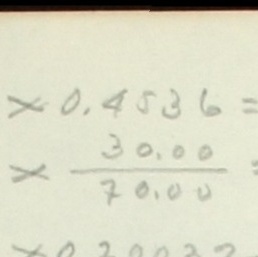 × 0.4536 =
× 30.00 =
70.00